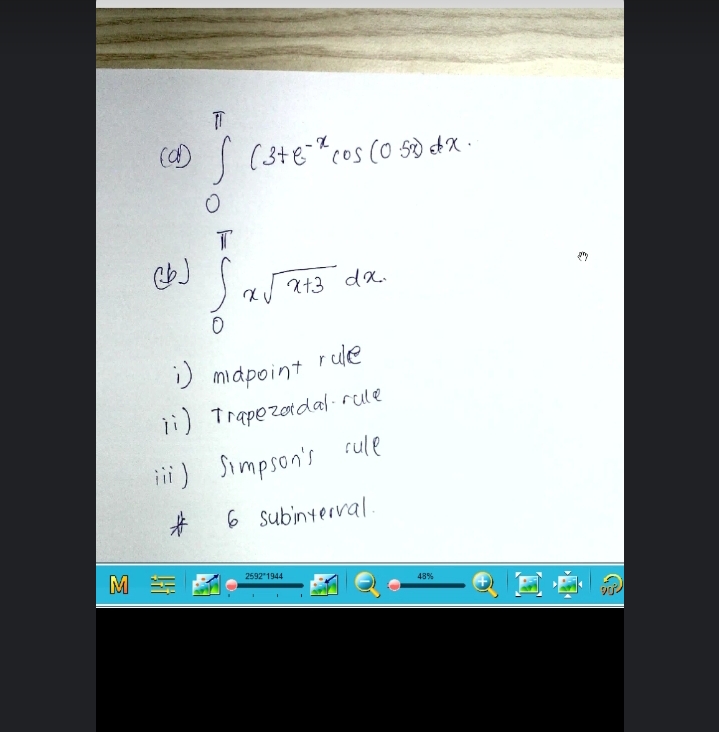 π
(a) ∫ (3+e^-x cos (0.5x) dx.
0
π
(b) ∫ x√x+3 dx.
0
i) midpoint rule
ii) Trapezoidal rule
iii) Simpson's rule
# 6 subinterval.
M 2592*1944 48% 90°